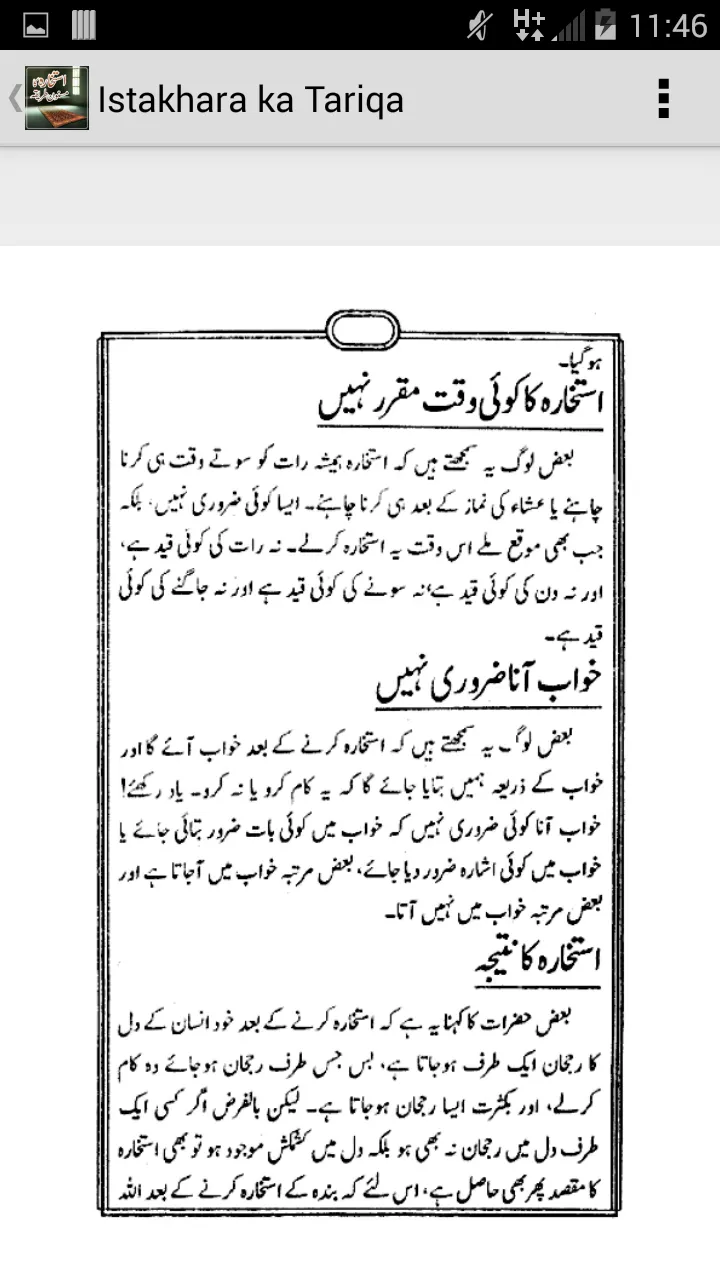 H+ 11:46
استخارہ کا
مسنون طریقہ
Istakhara ka Tariqa
ہوگیا۔
استخارہ کا کوئی وقت مقرر نہیں
بعض لوگ یہ سمجھتے ہیں کہ استخارہ ہمیشہ رات کو سوتے وقت ہی کرنا
چاہئے یا عشاء کی نماز کے بعد ہی کرنا چاہئے۔ ایسا کوئی ضروری نہیں، بلکہ
جب بھی موقع ملے اس وقت یہ استخارہ کرلے۔ نہ رات کی کوئی قید ہے،
اور نہ دن کی کوئی قید ہے، نہ سونے کی کوئی قید ہے اور نہ جاگنے کی کوئی
قید ہے۔
خواب آنا ضروری نہیں
بعض لوگ یہ سمجھتے ہیں کہ استخارہ کرنے کے بعد خواب آئے گا اور
خواب کے ذریعہ ہمیں بتایا جائے گا کہ یہ کام کرو یا نہ کرو۔ یاد رکھئے!
خواب آنا کوئی ضروری نہیں کہ خواب میں کوئی بات ضرور بتائی جائے یا
خواب میں کوئی اشارہ ضرور دیا جائے، بعض مرتبہ خواب میں آجاتا ہے اور
بعض مرتبہ خواب میں نہیں آتا۔
استخارہ کا نتیجہ
بعض حضرات کا کہنا یہ ہے کہ استخارہ کرنے کے بعد خود انسان کے دل
کا رجحان ایک طرف ہوجاتا ہے، بس جس طرف رجحان ہوجائے وہ کام
کرلے، اور بکثرت ایسا رجحان ہوجاتا ہے۔ لیکن بالفرض اگر کسی ایک
طرف دل میں رجحان نہ بھی ہو بلکہ دل میں کشمکش موجود ہو تو بھی استخارہ
کا مقصد پھر بھی حاصل ہے، اس لئے کہ بندہ کے استخارہ کرنے کے بعد اللہ